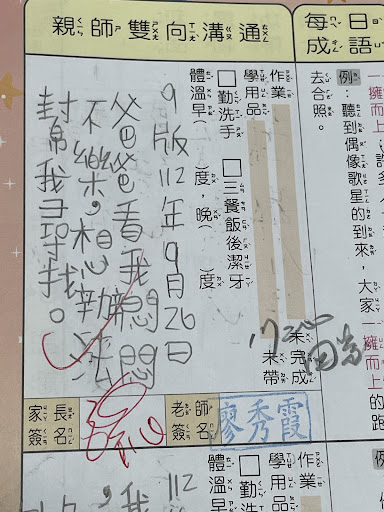 每日
成語
例：聽到偶像歌星的到來，大家一擁而上的跑
去合照。
親師雙向溝通
作業 未完成
學用品 未帶
□勤洗手 □三餐飯後潔牙
體溫早( )度，晚( )度
9版112年9月26日
爸爸看我悶悶
不樂，想辦法
幫我尋找。
家長簽名
老師簽名
廖秀霞
作業
學用品
□
體溫
112
我